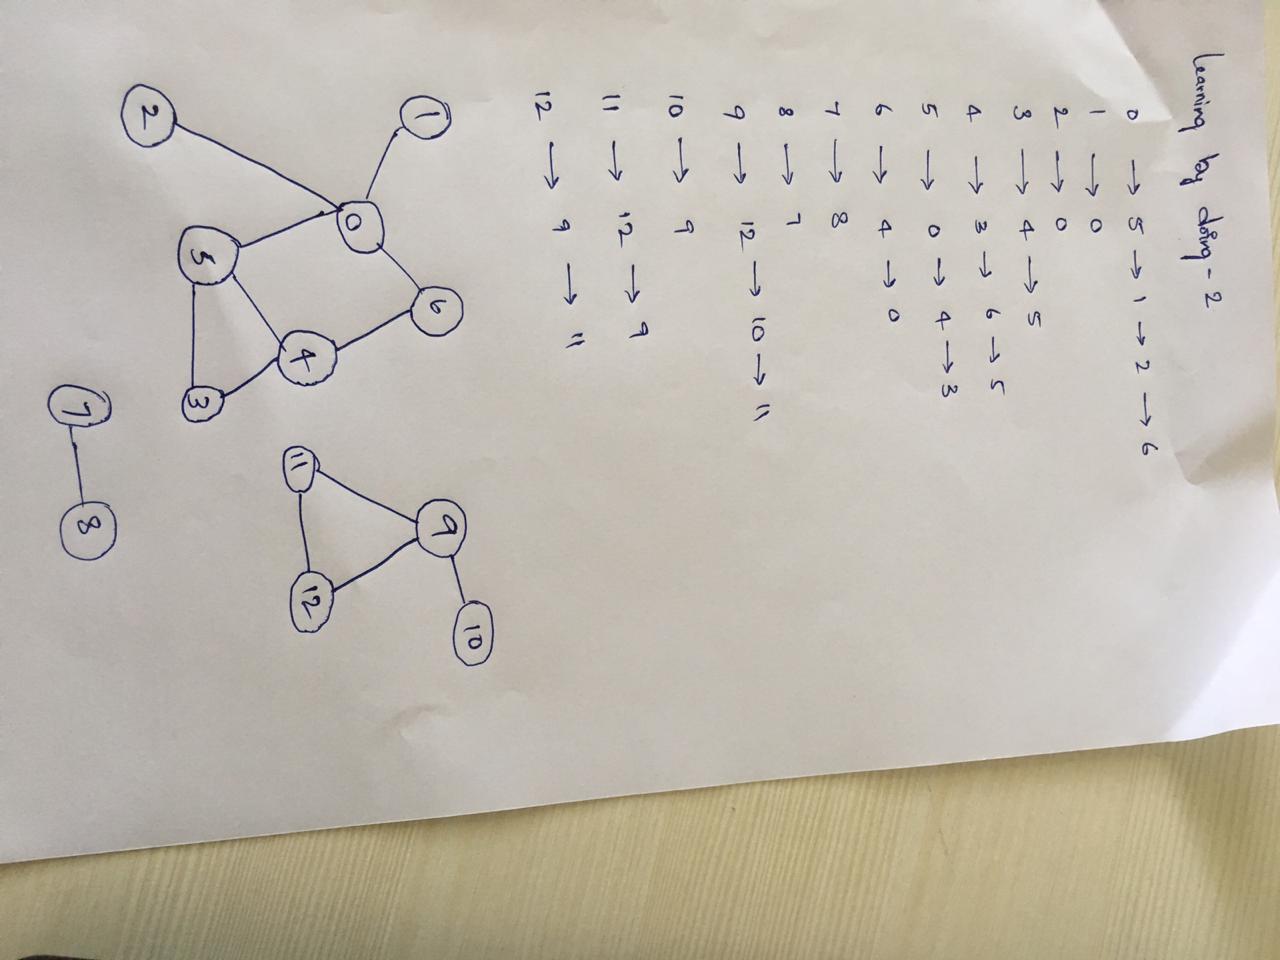 Learning by doing - 2
0 → 5 → 1 → 2 → 6
1 → 0
2 → 0
3 → 4 → 5
4 → 3 → 6 → 5
5 → 0 → 4 → 3
6 → 4 → 0
7 → 8
8 → 7
9 → 12 → 10 → 11
10 → 9
11 → 12 → 9
12 → 9 → 11
1 6 9 10
0
4 11 12
5 3
2
7 8